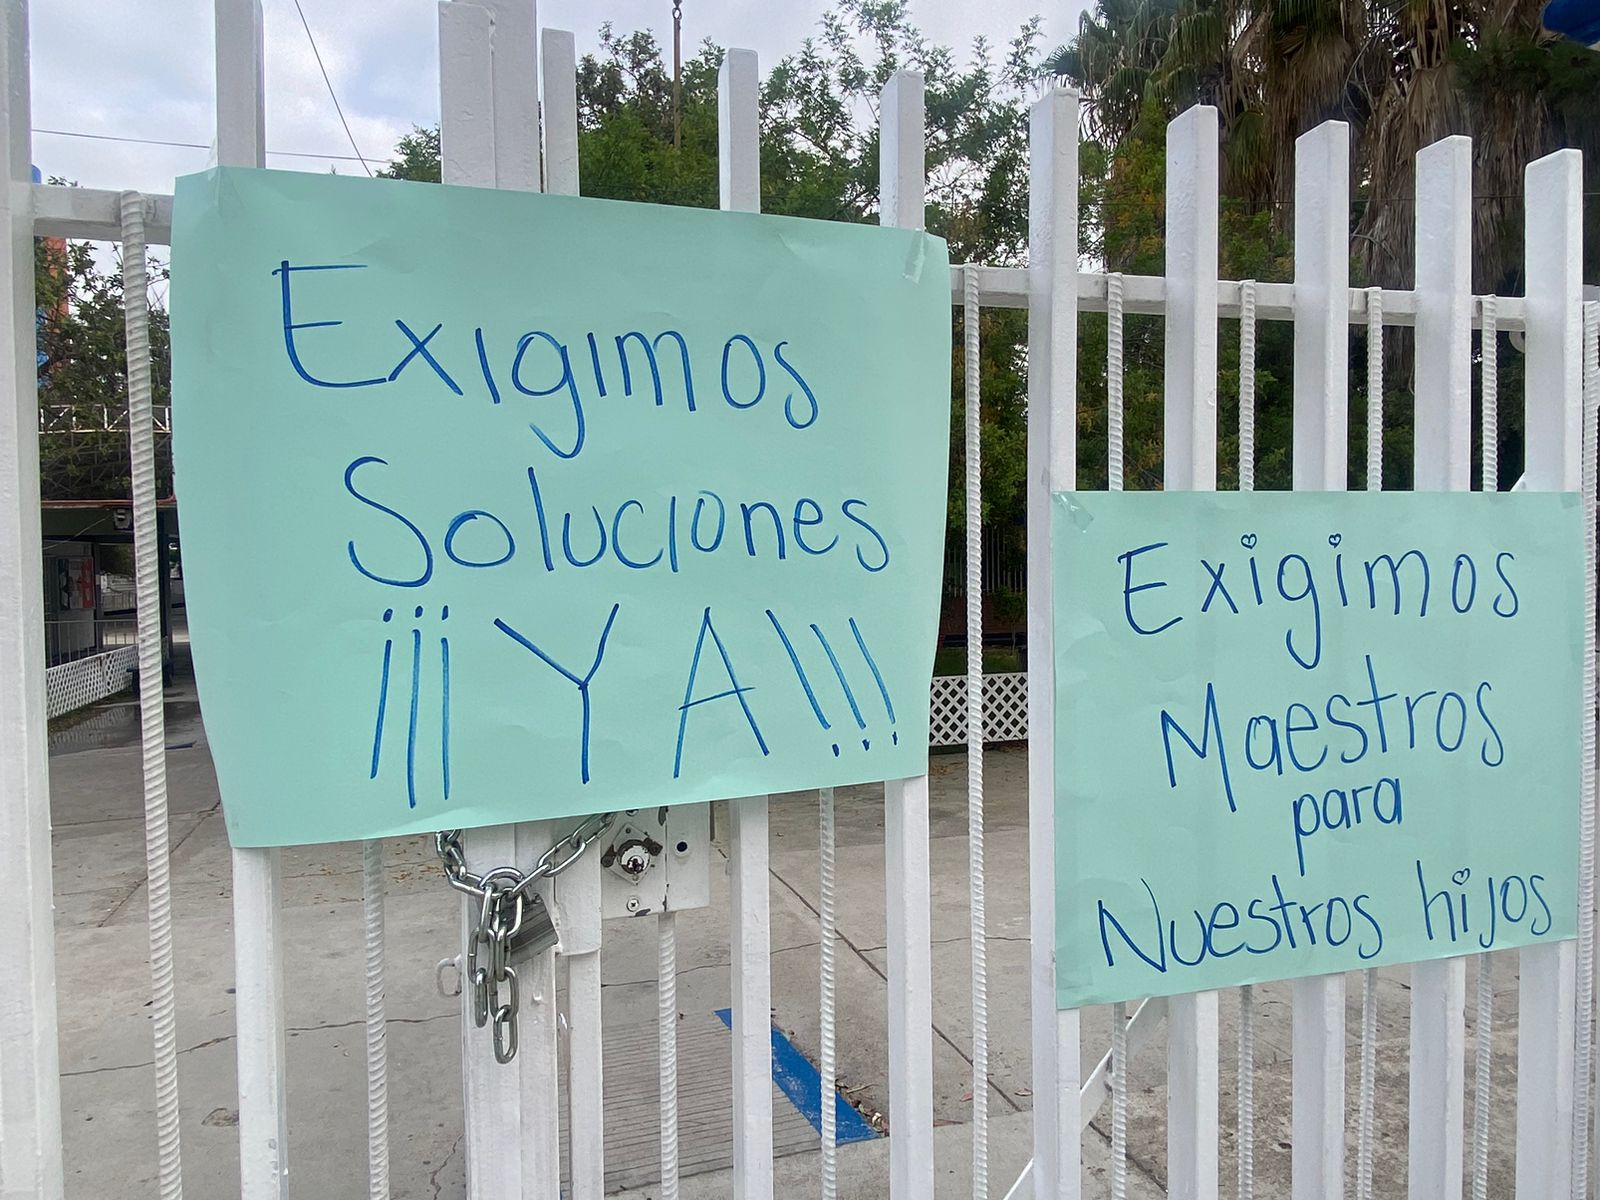 Exigimos
Soluciones
¡¡¡YA!!!
Exigimos
Maestros
para
Nuestros hijos